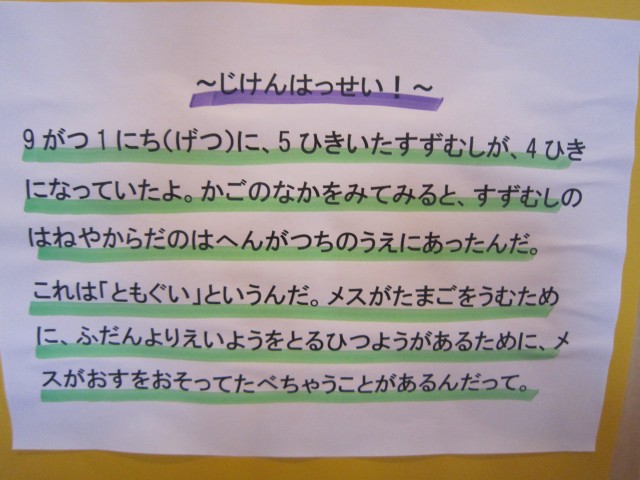 ～じけんはっせい！～
9がつ1にち(げつ)に、5ひきいたすずむしが、4ひき
になっていたよ。かごのなかをみてみると、すずむしの
はねやからだのはへんがつちのうえにあったんだ。
これは「ともぐい」というんだ。メスがたまごをうむため
に、ふだんよりえいようをとるひつようがあるために、メ
スがおすをおそってたべちゃうことがあるんだって。